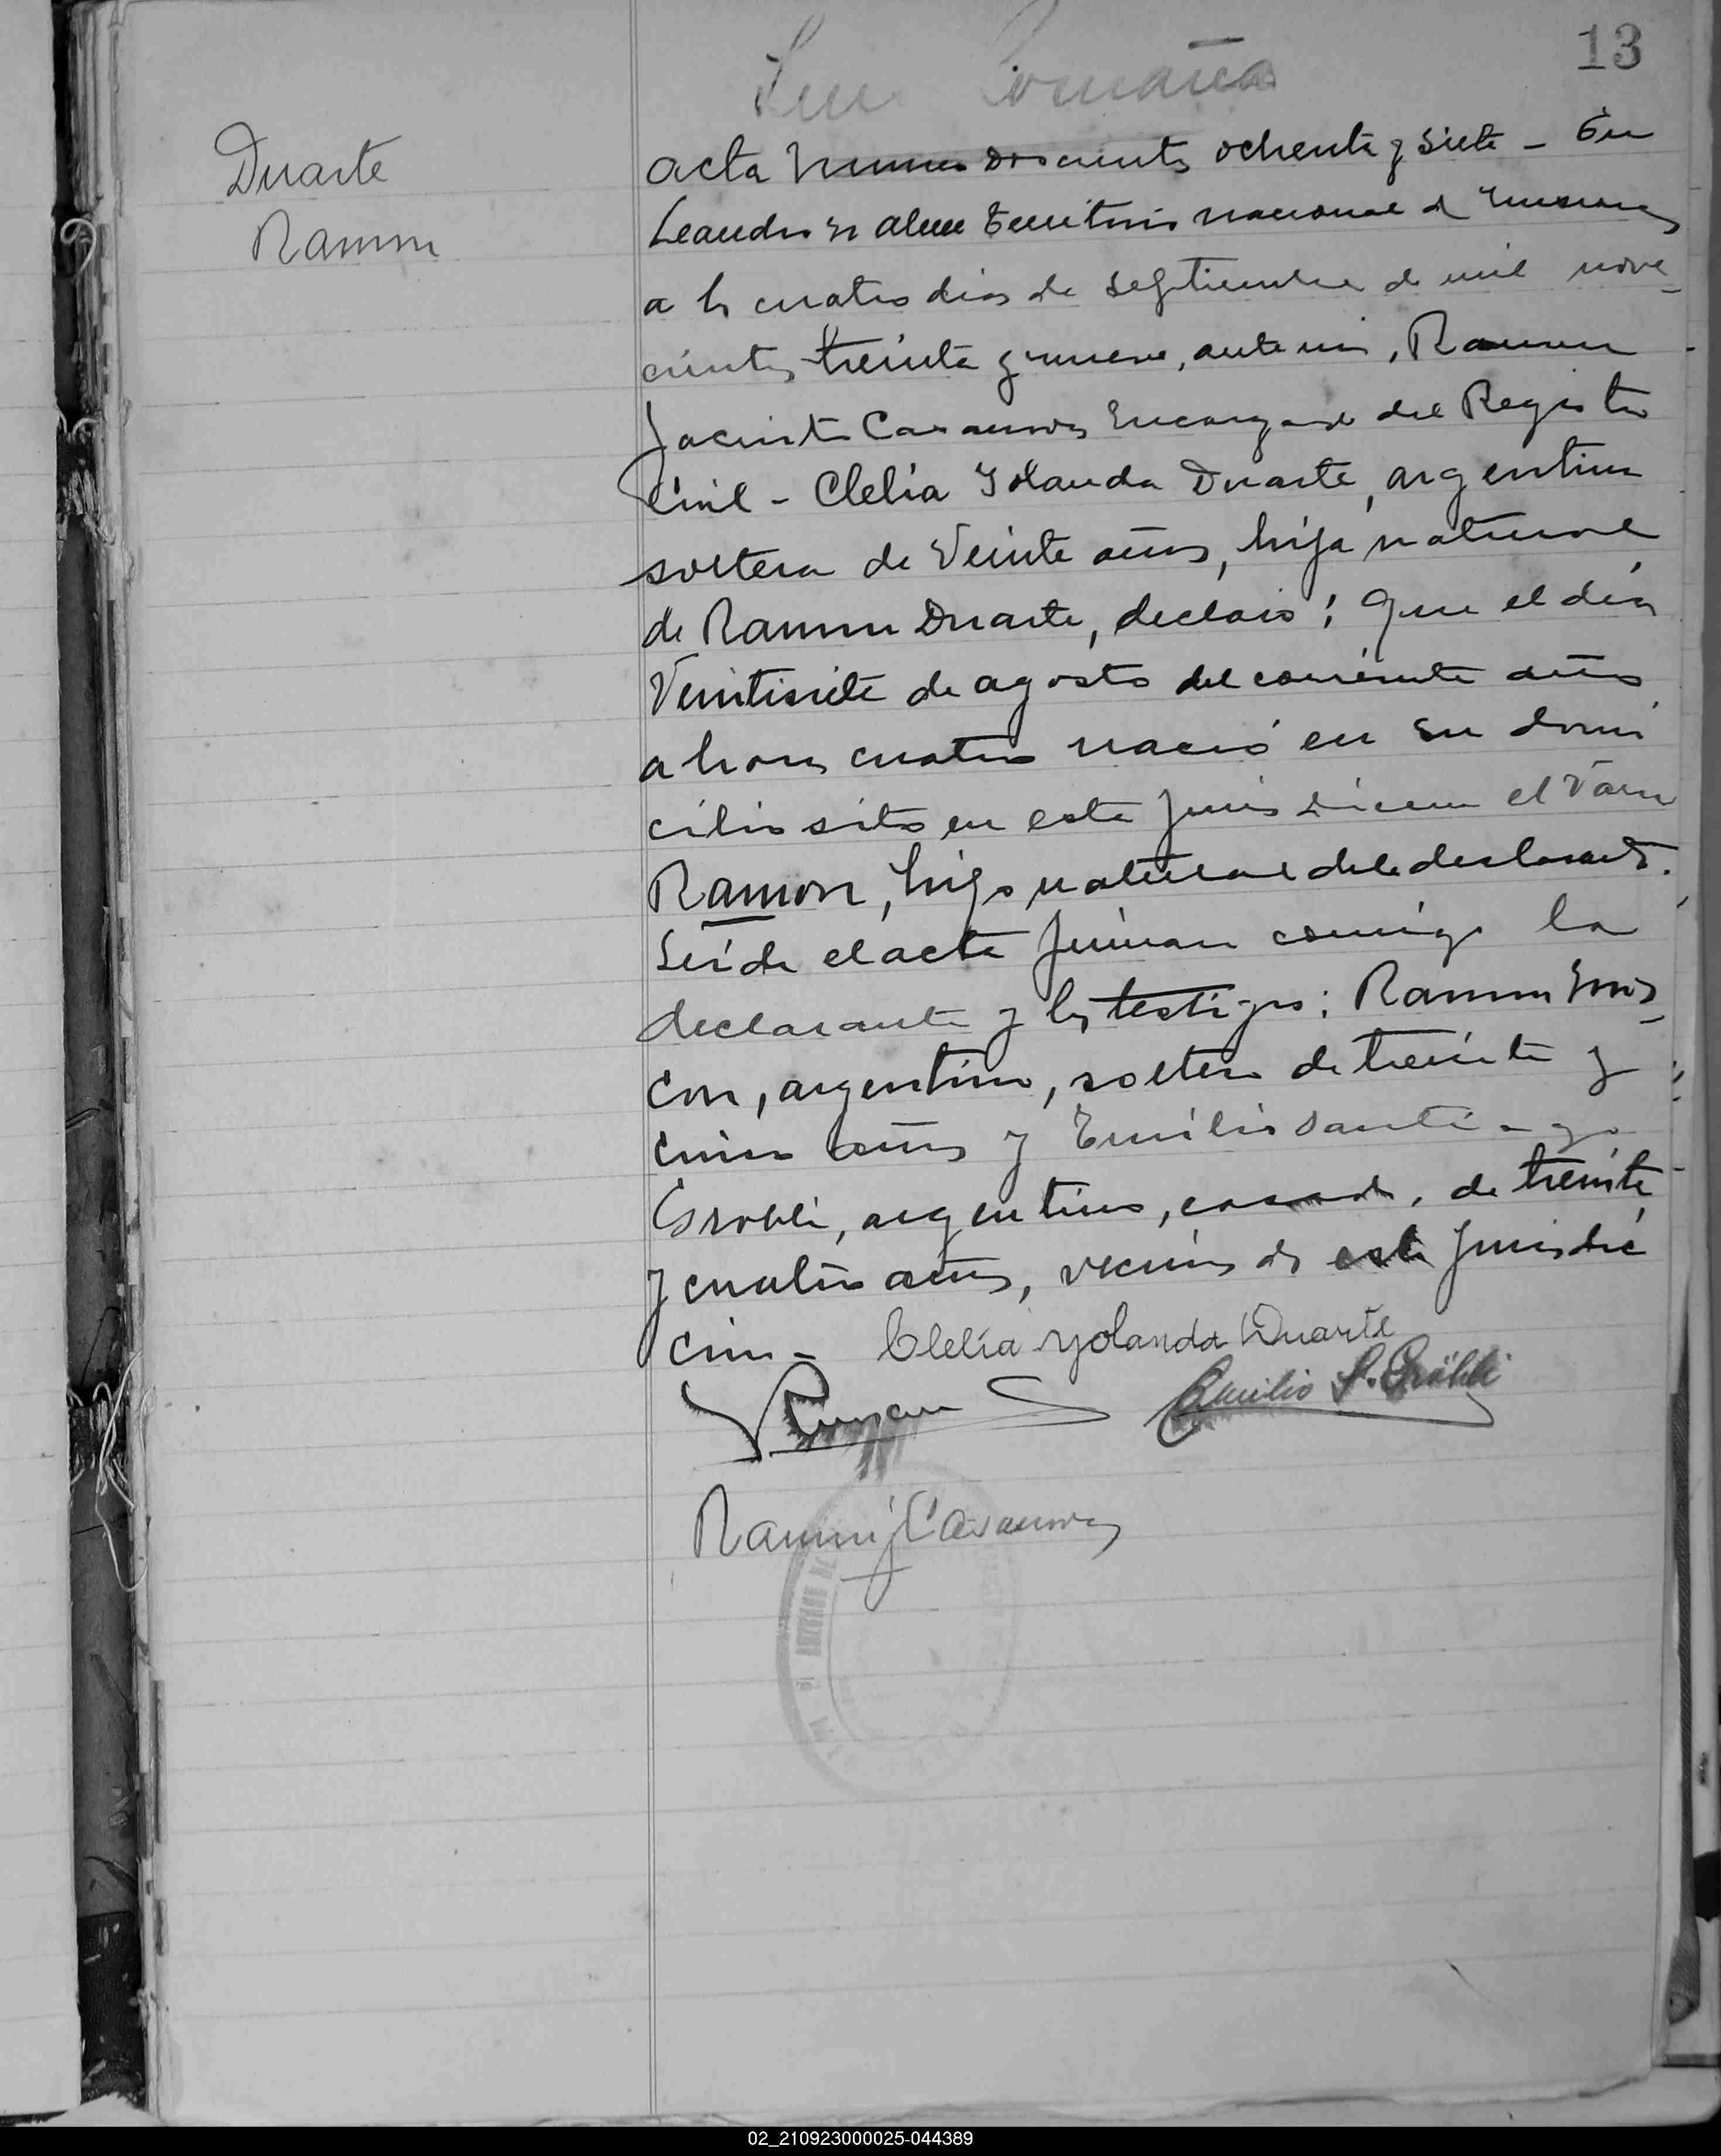 13
Duarte
Ramon
acta numero doscientos ochenta y siete - En
Leandro N alem territorio nacional de Misiones
a los cuatro dias de septiembre de mil nove
cientos treinta y nueve, ante mi, Ramon
Jacinto Casanova Encargado del Registro
Civil - Clelia Yolanda Duarte, argentina
soltera de Veinte años, hija natural
de Ramon Duarte, declaró: Que el dia
Veintisiete de agosto del corriente año
a horas cuatro nació en su domi
cilio sito en esta jurisdiccion el Varon
Ramon, hijo natural de la declarante.
Leida el acta firman conmigo la
declarante y los testigos: Ramon
con, argentino, soltero de treinta y
cinco años y Emilio Santiago
Grohli, argentino, casado, de treinta
y cuatro años, vecinos de esta jurisdic
cion - Clelia Yolanda Duarte
Emilio S. Gröhli
Ramon J Casanova
02_210923000025-044389